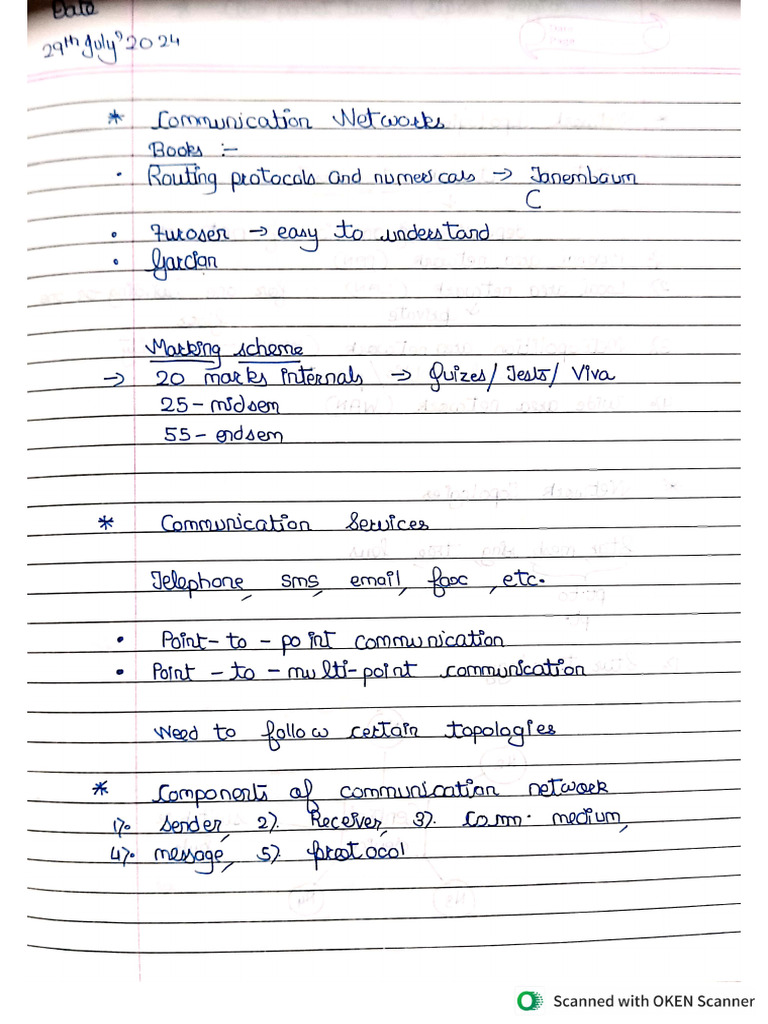 Date
29th July 2024
* Communication Networks
Books :-
• Routing protocals and numericals → Tanembaum
C
• Furosen → easy to understand
• Garcian
Marking scheme
→ 20 marks internals → Quizes/ Tests/ Viva
25 - midsem
55 - endsem
* Communication Services
Telephone, sms, email, fax, etc.
• Point - to - point communication
• Point - to - multi-point communication
Need to follow certain topologies
* Components of communication network
1). sender, 2). Receiver, 3). Comm. medium,
4). message, 5). protocol
Scanned with OKEN Scanner